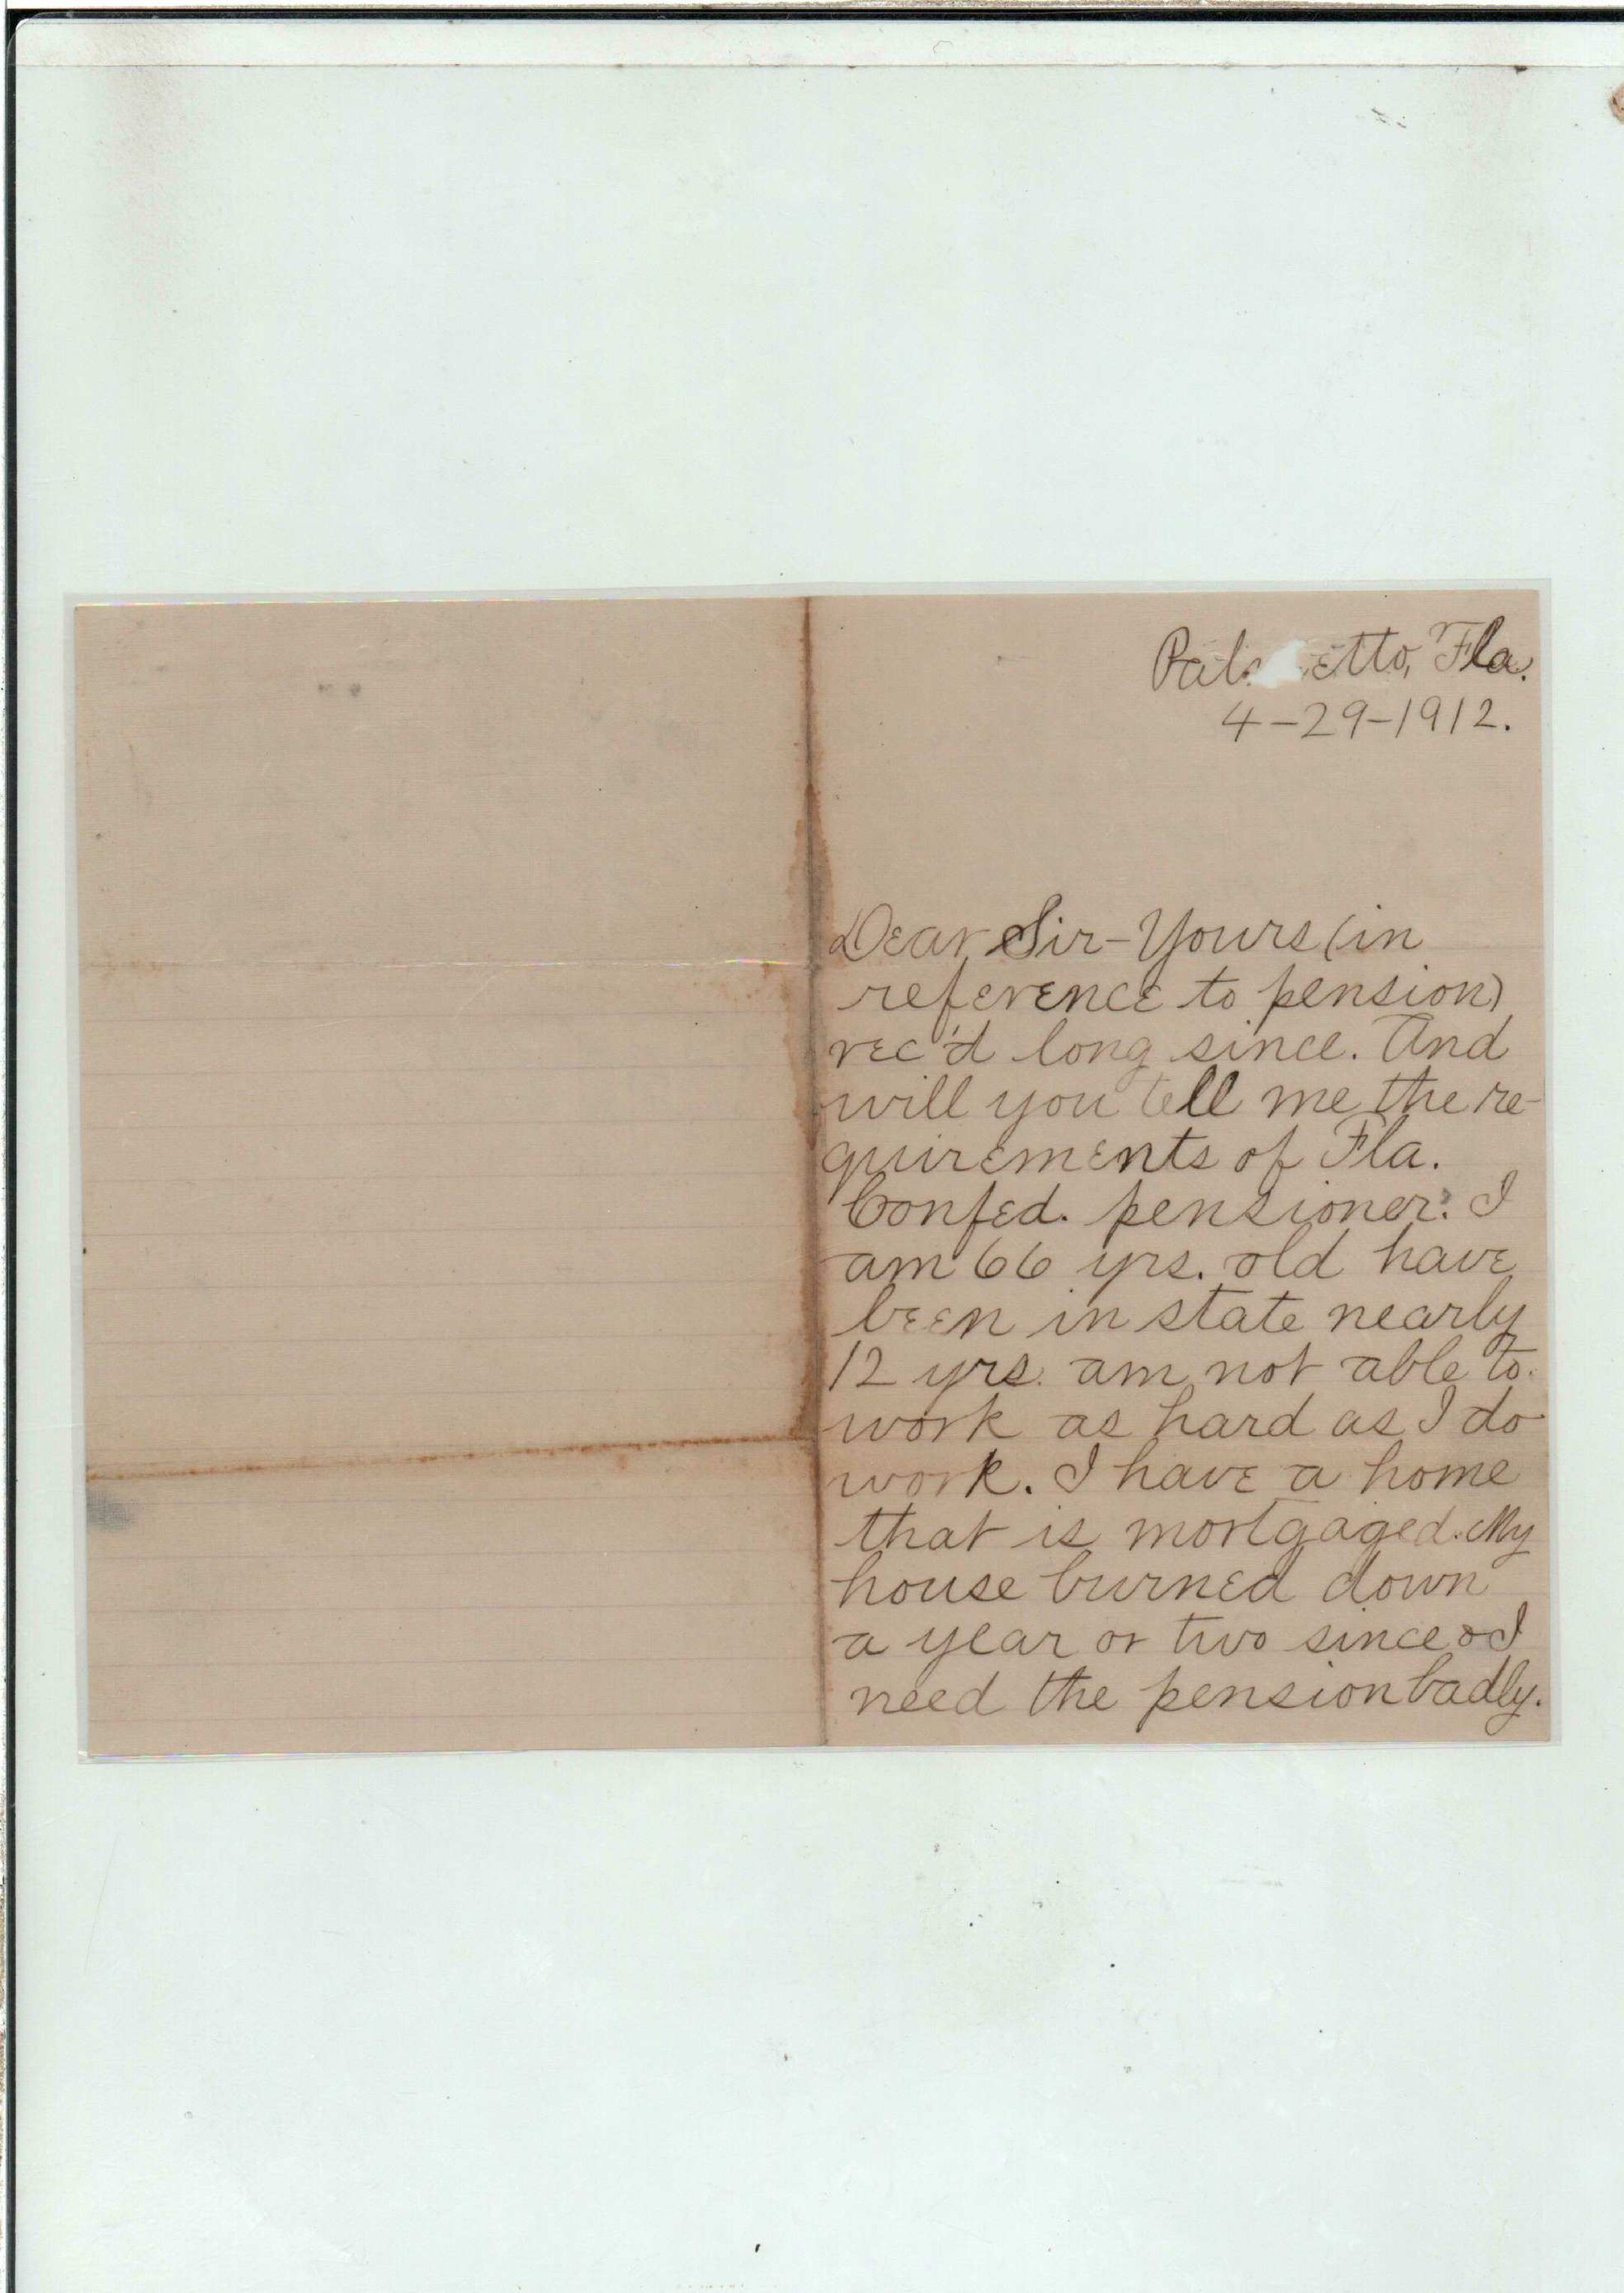 Palmetto, Fla.
4-29-1912.
Dear Sir-Yours (in
reference to pension)
rec'd long since. And
will you tell me the re-
quirements of Fla.
Confed. pensioner. I
am 66 yrs. old have
been in state nearly
12 yrs. am not able to
work as hard as I do
work. I have a home
that is mortgaged. My
house burned down
a year or two since & I
need the pension badly.